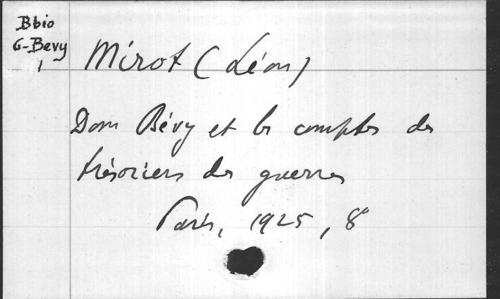 Bbio
G-Bévy
1
Mirot (Léon)
Dom Bévy et les comptes des
trésoriers des guerres
Paris, 1925, 8°